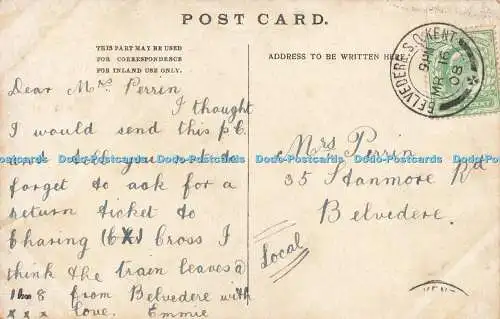 POST CARD.
THIS PART MAY BE USED
FOR CORRESPONDENCE
FOR INLAND USE ONLY.
ADDRESS TO BE WRITTEN HERE
BELVEDERE S.O. KENT
MR 16
08
Dear Mrs Perrin
I thought
I would send this p.c.
and tell you not to
forget to ask for a
return ticket to
Charing Cross I
think the train leaves @
8 from Belvedere with
x x x love. Emmie
Mrs Perrin
35 Stanmore Rd
Belvedere.
Local
KENT
Dodo Postcards Dodo Postcards Dodo Postcards Dodo Postcards Dodo Postcards